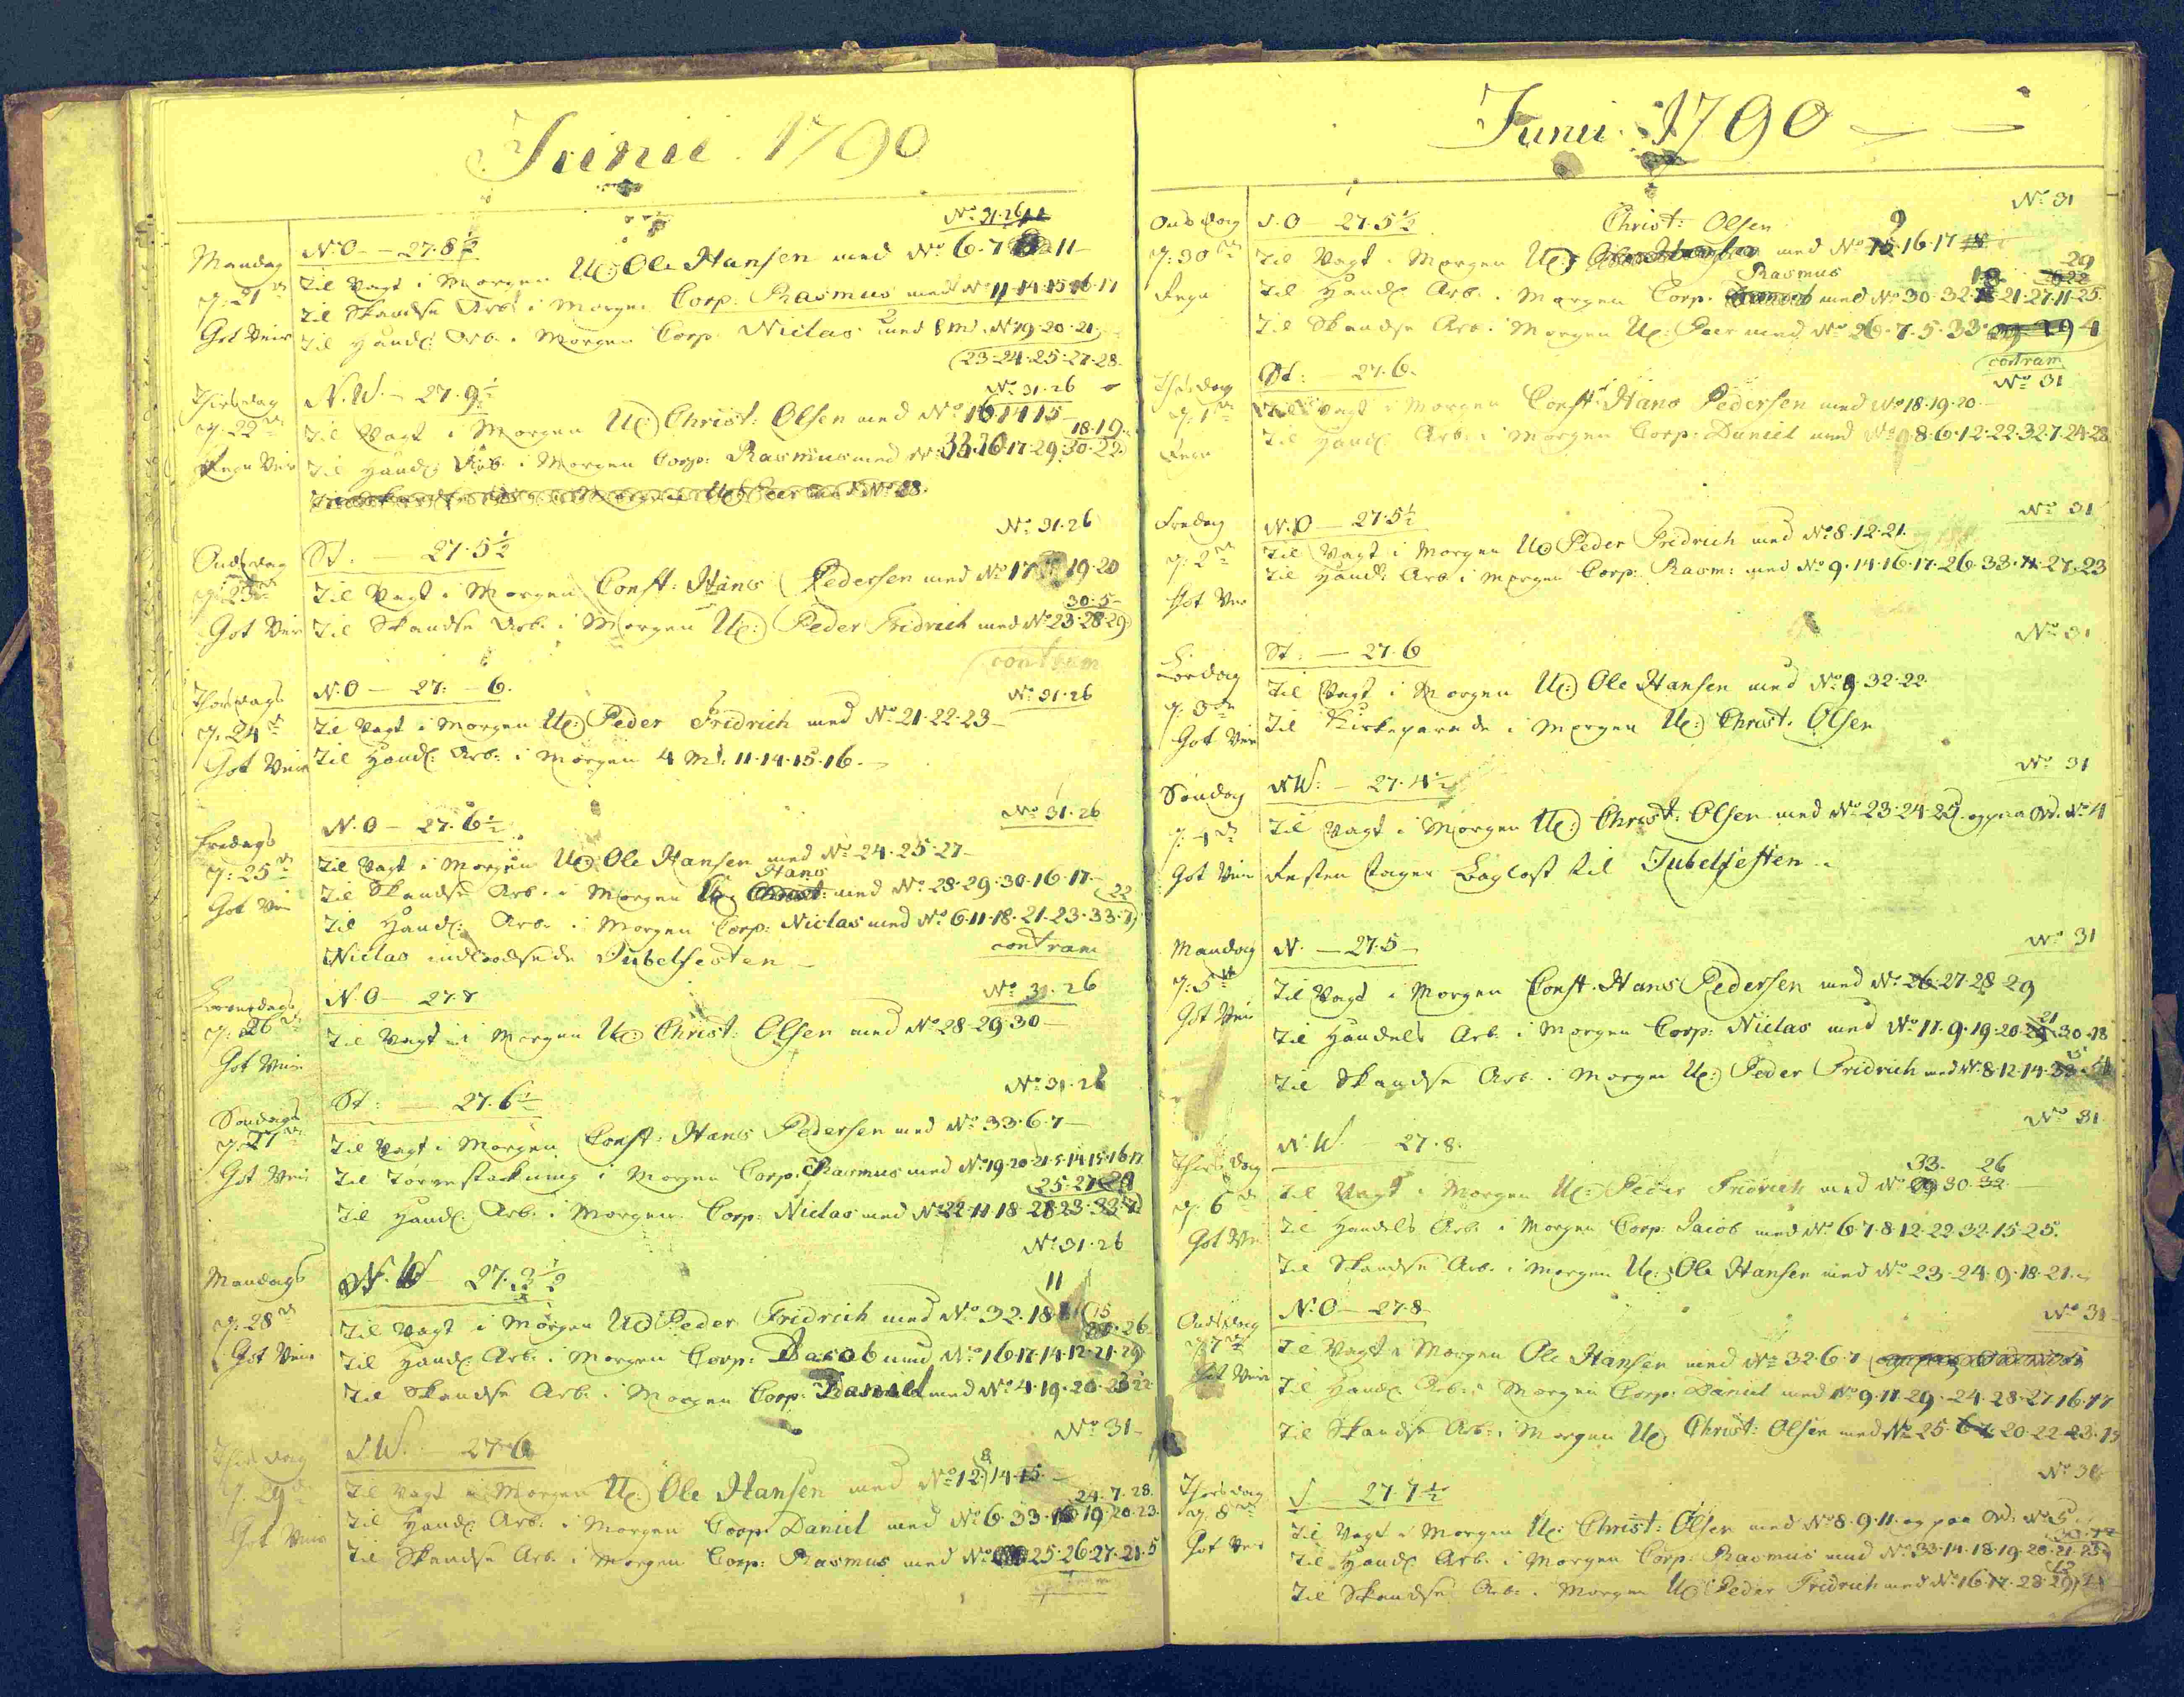 Junii 1790
No 31·26
Mandag N.O — 27·8½
d: 21de Til Vagt i Morgen Uc: Ole Hansen med No 6·7 11
Til Skandse Arb: i Morgen Corp: Rasmus med No 11·14·15·16·17
Got Veir Til Handl: Arb. i Morgen Corp: Niclas med 8 md. No 19·20·21
23·24·25·27·28
No 31·26
Thirsdag N.W. — 27·9½
d: 22de Til Vagt i Morgen Uc: Christ: Olsen med No 16·14·15
18·19
Regn Veir Til Handl: Arb. i Morgen Corp: Rasmus med No 33·16·17·29·30·22
No 31·26
Onsdag St: — 27·5½
d: 23de Til Vagt i Morgen Const: Hans Pedersen med No 17 19·20
30·5
Got Veir Til Skandse Arb. i Morgen Uc: Peder Fridrich med No 23·28·29
contram
Thorsdags N.O — 27: — 6. No 31·26
d: 24de Til Vagt i Morgen Uc: Peder Fridrich med No 21·22·23
Got Veir Til Handl: Arb: i Morgen 4 Md. 11·14·15·16
No 31·26
Fredags N.O — 27·6½
d: 25de Til Vagt i Morgen Uc: Ole Hansen med No 24·25·27
Hans
Til Skandse Arb. i Morgen Uc: Christ: med No 28·29·30·16·17
22
Got Veir Til Handl: Arb. i Morgen Corp: Niclas med No 6·11·18·21·23·33·7
Niclas Jubelfesten contram
N.O — 27·7 No 31·26
d: 26de Til Vagt i Morgen Uc: Christ: Olsen med No 28·29·30
Got Veir
No 31·26
Søndags St: — 27·6½
d: 27de Til Vagt i Morgen Const: Hans Pedersen med No 33·6·7
Got Veir Til Tørvestackning i Morgen Corp: Rasmus med No 19·20·21·5·14·15·16·17
25·27·29
Til Handl: Arb. i Morgen Corp: Niclas med No 22·11·18·28·23·33·7
No 31·26
Mandags N.W 27·3½
11
d: 28de Til Vagt i Morgen Uc: Peder Fridrich med No 32·18
15
26
Got Veir Til Handl: Arb: i Morgen Corp: Jacob med No 16·17·14·12·21·29
Til Skandse Arb: i Morgen Corp: Daniel med No 4·19·20·23·22
No 31
Thirsdag S.W. — 27·6
8
d: 29de Til Vagt i Morgen Uc: Ole Hansen med No 12·14·15
24·7·28
Got Veir Til Handl: Arb: i Morgen Corp: Daniel med No 6·33·16·19·20·23
Til Skandse Arb: i Morgen Corp: Rasmus med No 25·26·27·21·5
Junii 1790
No 31
Onsdag S.O — 27·5½ Christ: Olsen 9
d: 30de Til Vagt i Morgen Uc: Ole Hansen med No 15·16·17
Rasmus 18 29
Regn Til Handl: Arb. i Morgen Corp. Daniel med No 30·32·21·27·11·25
Til Skandse Arb. i Morgen Uc: Peer med No 26·7·5·33 4
contram
Thorsdag St: — 27·6. No 31
d: 1ste Til Vagt i Morgen Const: Hans Pedersen med No 18·19·20
Regn Til Handl: Arb. i Morgen Corp: Daniel med No 8·6·12·22·32·7·24·28
No 31
Fredag N.O — 27·5½
d: 2den Til Vagt i Morgen Uc: Peder Fridrich med No 8·12·21.
Got Veir Til Handl: Arb. i Morgen Corp: Rasm: med No 9·14·16·17·26·33·11·27·23
No 31
Lørdag St: — 27·6
d: 3de Til Vagt i Morgen Uc: Ole Hansen med No 9·32·22
Got Veir Til Kirkeparade i Morgen Uc: Christ. Olsen
No 31
Søndag N.W: — 27·4½
d: 4de Til Vagt i Morgen Uc: Christ: Olsen med No 23·24·25 og paa Ord. No 4
Got Veir Resten tager Baglast til Jubelfesten
No 31
Mandag N. — 27·5
d: 5te Til Vagt i Morgen Const. Hans Pedersen med No 26·27·28·29
21
Got Veir Til Handels Arb. i Morgen Corp: Niclas med No 11·9·19·20·29·30·18
Til Skandse Arb. i Morgen Uc: Peder Fridrich med No 8·12·14·33
No 31
Thirsdag N.W. — 27·8.
33 26
d: 6te Til Vagt i Morgen Uc: Peder Fridrich med No 30·32
Got Veir Til Handels Arb. i Morgen Corp: Jacob med No 6·7·8·12·22·32·15·25.
Til Skandse Arb. i Morgen Uc: Ole Hansen med No 23·24·9·18·21.
Onsdag N.O — 27·8 No 31
d: 7de Til Vagt i Morgen Ole Hansen med No 32·6·7
Got Veir Til Handl: Arb. i Morgen Corp: Daniel med No 9·11·29·24·28·27·16·17
Til Skandse Arb: i Morgen Uc: Christ: Olsen med No 25·6·7·20·22·23·15
No 31
Thorsdag S. — 27·7½
d: 8de Til Vagt i Morgen Uc: Christ: Olsen med No 8·9·11 og paa Ord: No 5
Got Veir Til Handl: Arb. i Morgen Corp: Rasmus med No 33·14·18·19·20·21·25
Til Skandse Arb. i Morgen Uc: Peder Fridrich med No 16·17·28·29